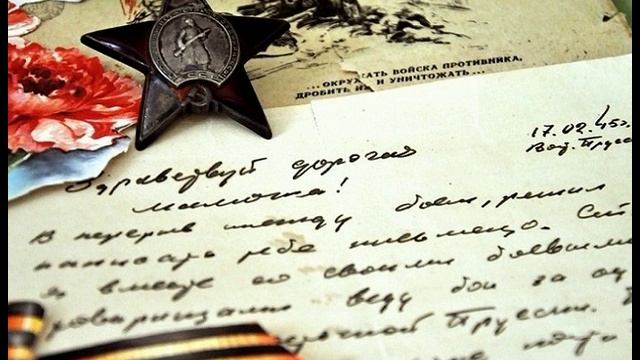 ...ОКРУЖАТЬ ВОЙСКА ПРОТИВНИКА,
ДРОБИТЬ ИХ И УНИЧТОЖАТЬ...
17.02.45г
Вост. Прусс
Здравствуй дорогая
мамочка!
В перерыв между боем, решил
написать тебе письмецо.
я вместе со своими боевыми
товарищами веду бои за
точной Пруссии.